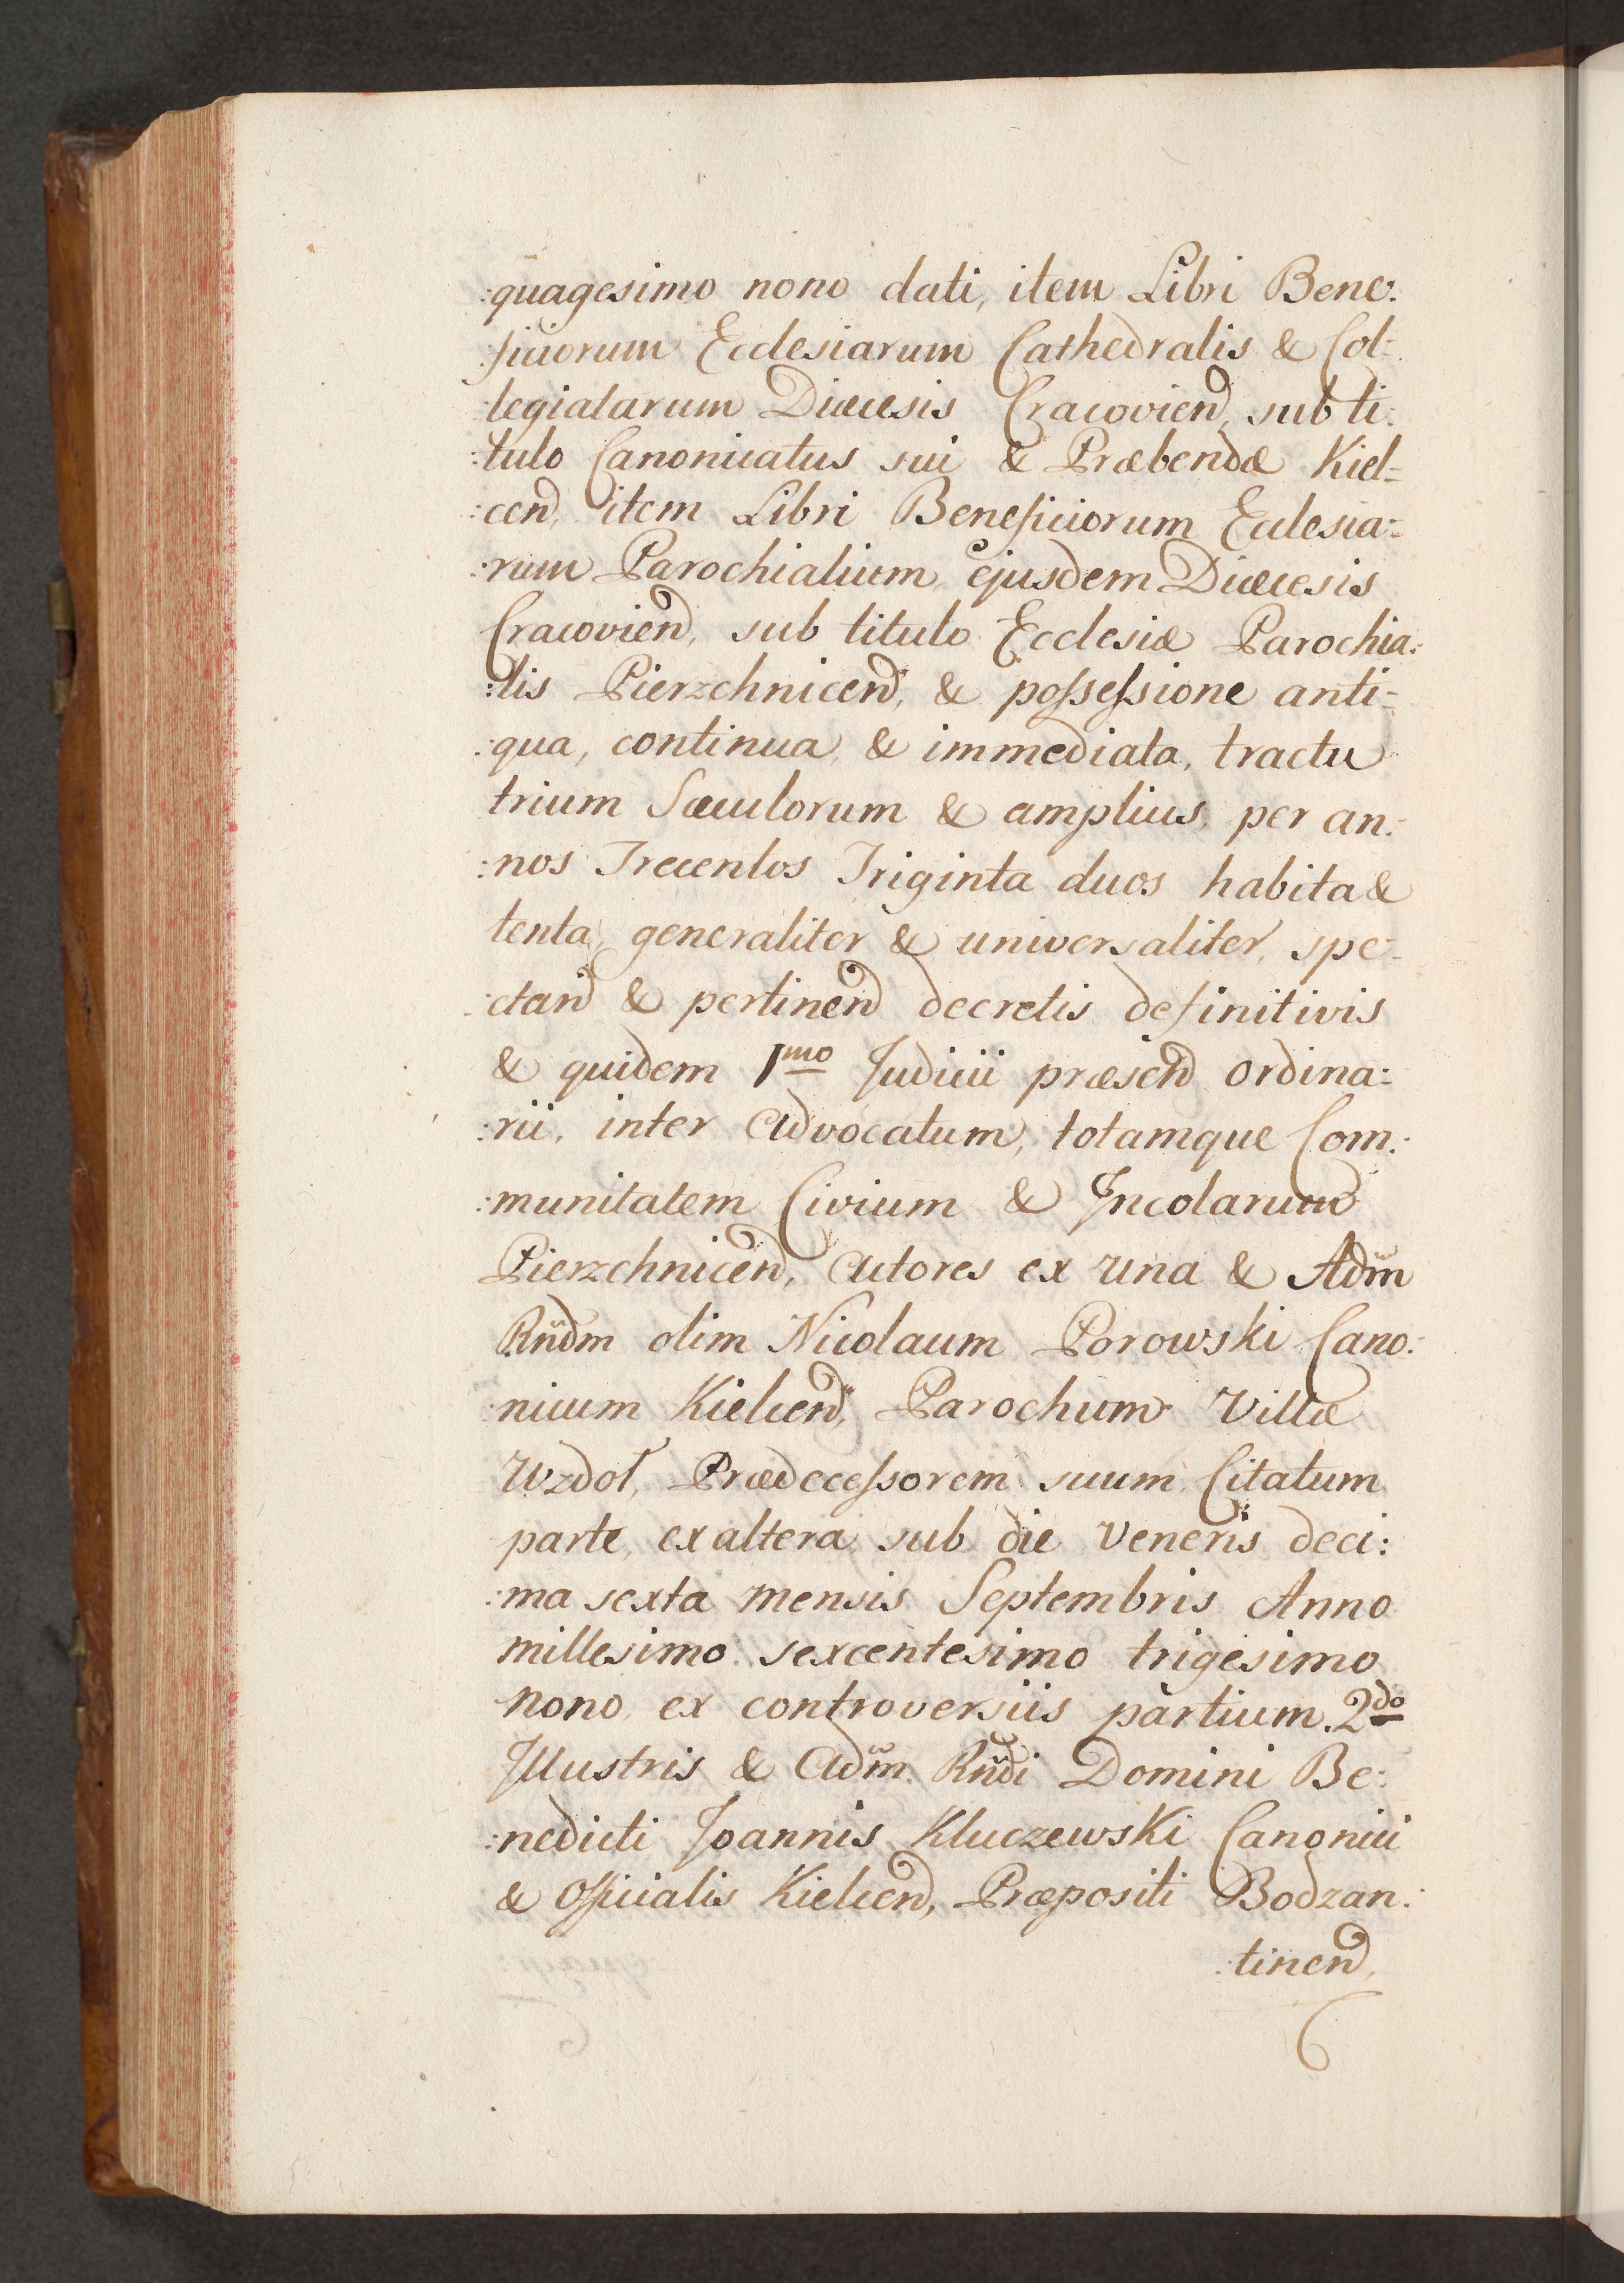 :quagesimo nono dati, item Libri Bene:
:ficiorum Ecclesiarum Cathedralis & Col=
legiatarum Diæcesis Cracoviend, sub ti:
:tulo Canonicatus sui & Præbendæ Kiel=
:cend, item Libri Beneficiorum Ecclesia:
:rum Parochialium ejusdem Diæcesis
Cracoviend, sub titulo Ecclesiæ Parochia:
:lis Pierzchnicend, & possessione anti=
:qua, continua, & immediata, tractu
trium Sæculorum & amplius, per an:
:nos Trecentos Triginta duos habita &
tenta, generaliter & universaliter, spe:
:ctand & pertinend decretis definitivis
& quidem 1mo Judicii præsend Ordina:
:rii, inter Advocatum, totamque Com:
:munitatem Civium & Incolarum
Pierzchnicend, Actores ex una & Adm
Rndm olim Nicolaum Porowski Cano:
nicum Kielcend, Parochum Villæ
Wzdoł, Prædecessorem suum Citatum
parte, ex altera sub die Veneris deci:
:ma sexta mensis Septembris Anno
millesimo sexcentesimo trigesimo
nono, ex controversiis partium. 2do
Illustris & Adm. Rndi Domini Be:
:nedicti Joannis Kluczewski Canonici
& Officialis Kielcend, Præpositi Bodzan:
:tinend,